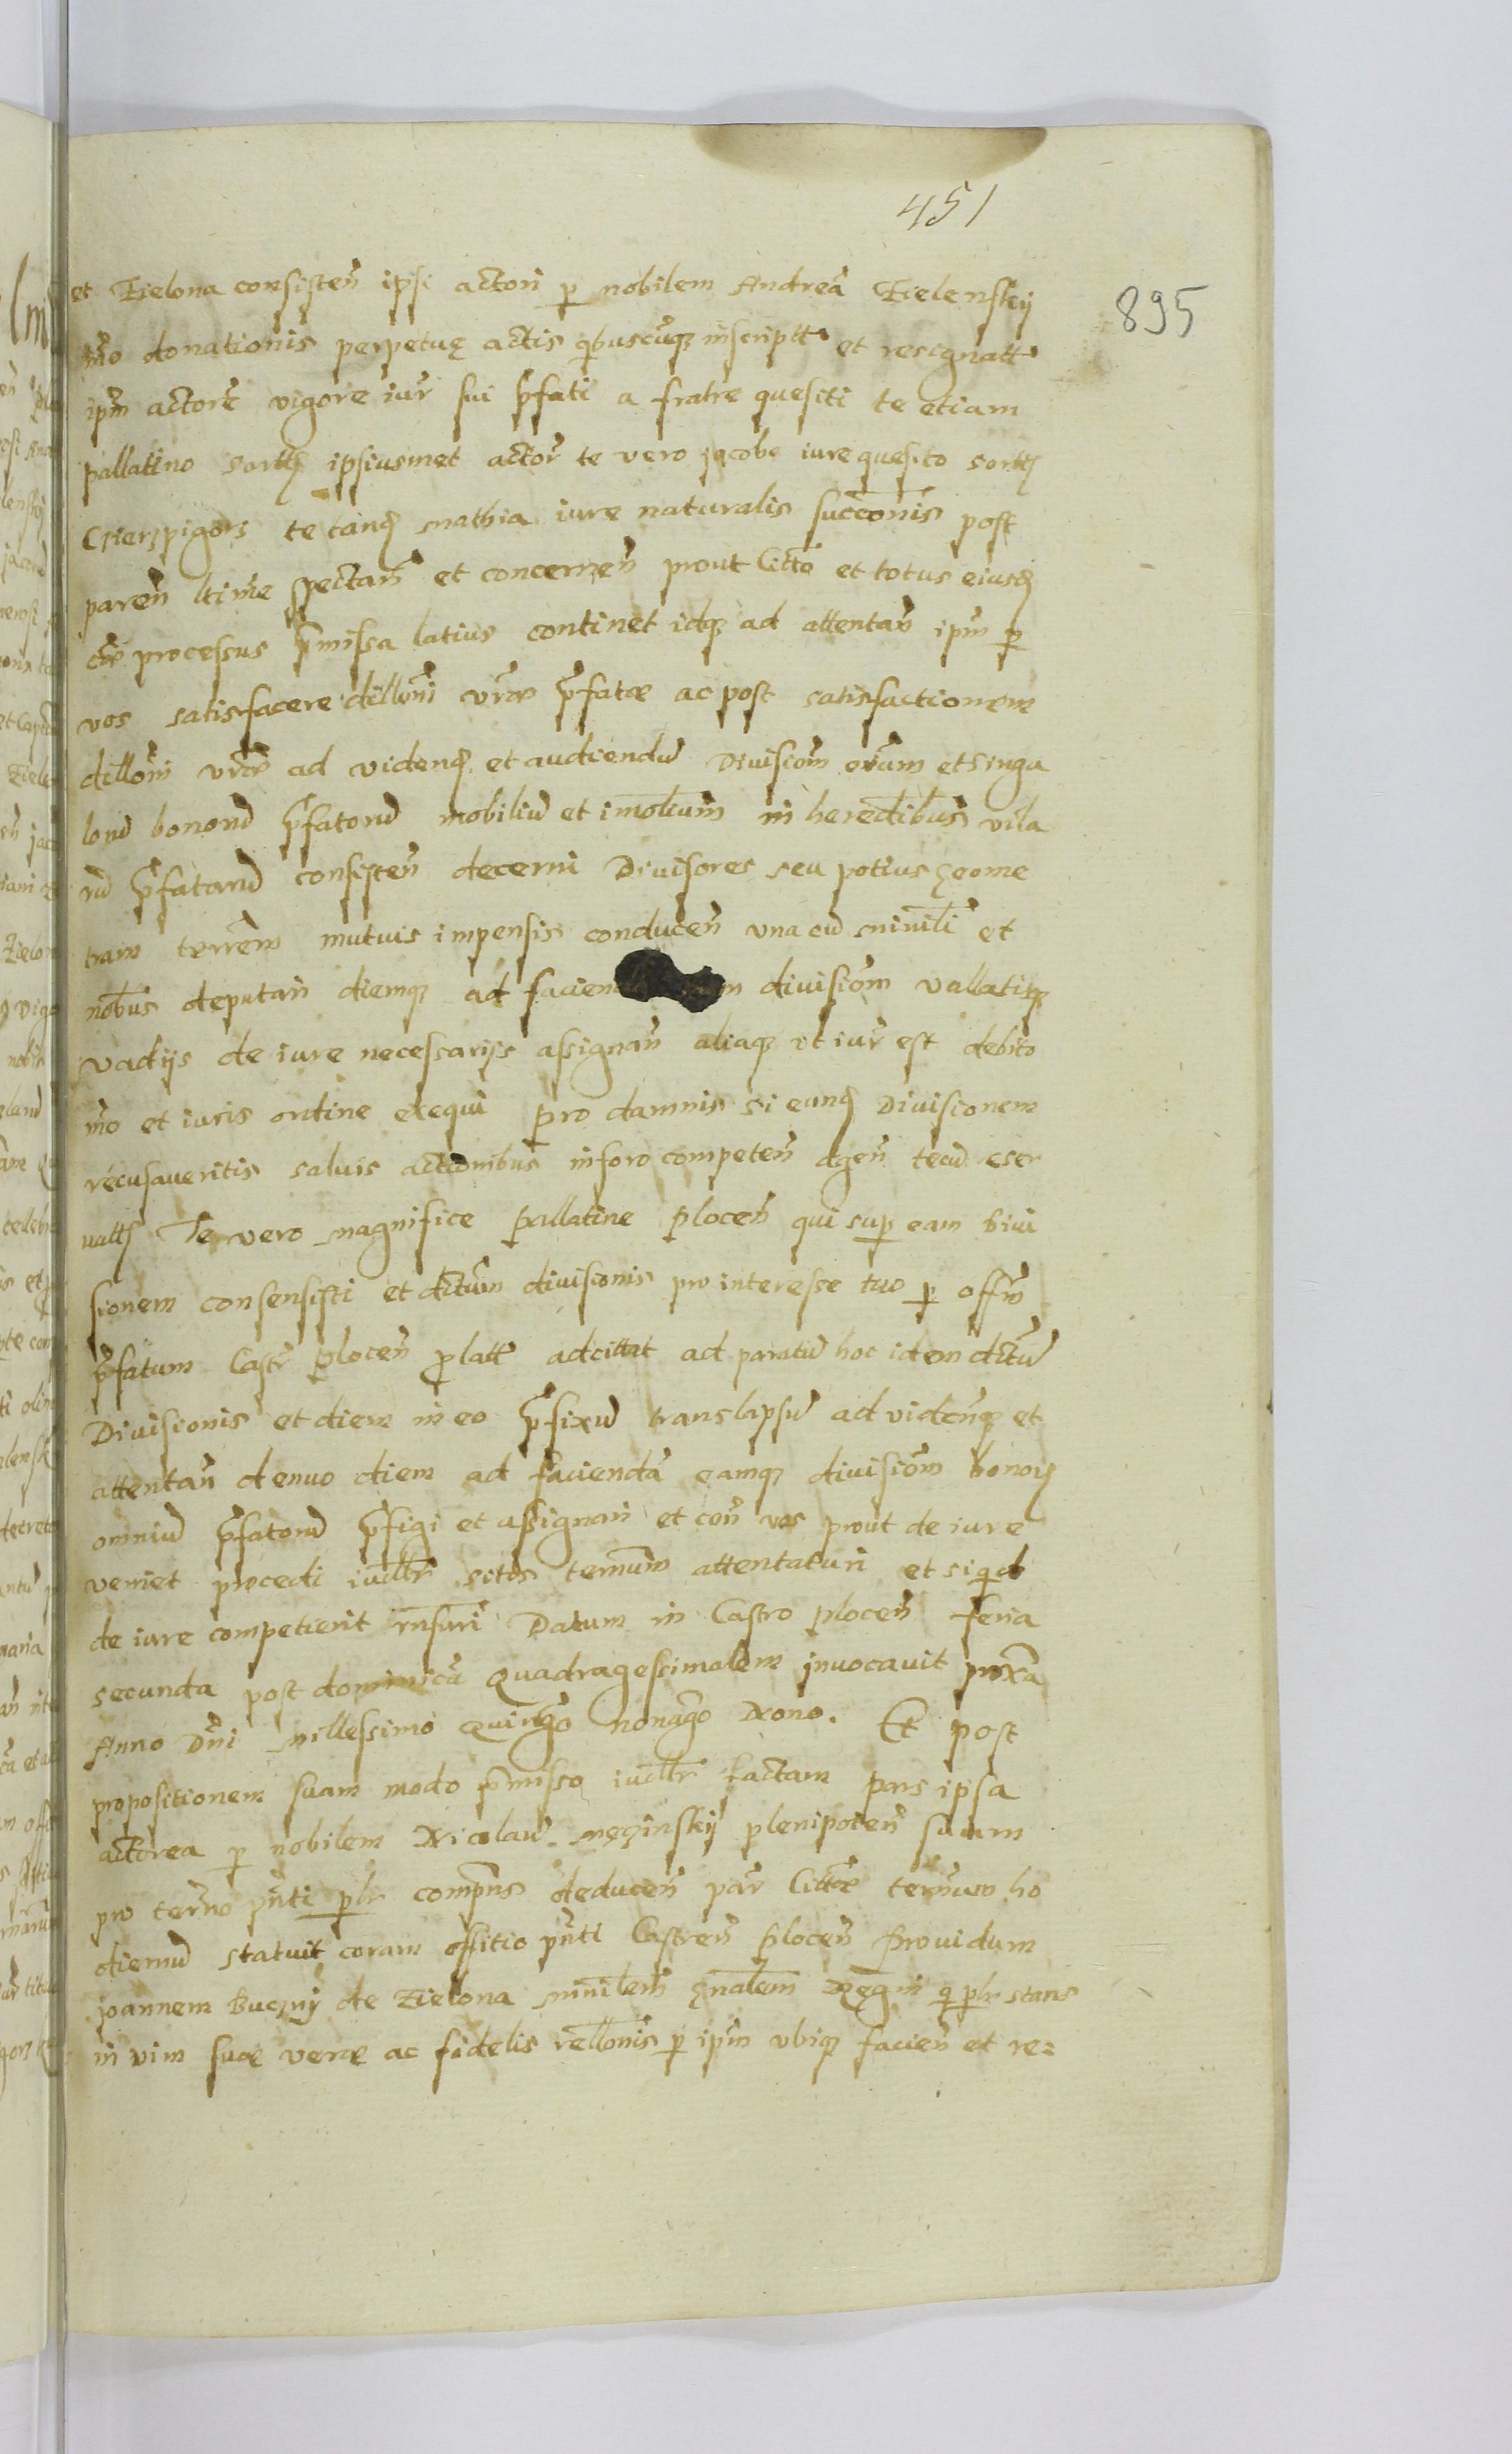 451
895
et Zielona consisten̄ ipsi actori p nobilem Andreā Zielenskij
mō donationis perpetuę actis qbuscūq inscriptt et resignatt
ipm̄ actorē vigore iur̄ sui p̄fati a fratre quesiti te etiam
pallatino sortt ipsiusmet actor̄ te vero jacobe iure quesito sortt
Czierzpigorz te tanq mathia iure naturalis succōnis post
paren̄ ltime spectan̄ et concernen̄ prout Litt̄o et totus eiusd
cē processus p̄missa latius continet idq ad attentan̄ ipm̄ p
vos satisfacere dillōni vrāe p̄fatæ ac post satisfactionem
dillōni vrāe ad videnđ et audiendū Divisiōm om̄ium et singu
lorū bonorū p̄fatorū mobiliū et imobilium in heredibus villa
rū p̄fatarū consisten̄ decerni Divisores seu potius geome
tram terrēm mutuis impensis conducen̄ vna cū minili et
nobus deputari diemq ad faciend divisiōm vallatisq
vadijs de iure necessarijs assignan̄ aliaq vt iur̄ est debito
mō et iuris ordine exequi pro damnis si eanđ Divisionem
recusaveritis salvis actionibus in foro competen̄ agen̄ tecū eser
uatt Te vero magnifice pallatine plocen̄ qui sup eam Divi
sionem consensisti et dctum̄ divisionis pro interesse tuo p offm̄
p̄fatum Castr̄ plocen̄ p̄latt adcittat ad paratū hoc idem dctū
Divisionis et diem in eo p̄fixū translapsū ad videnđ et
attentan̄ denuo diem ad faciendā eamq divisiōm bonorū
omniū p̄fatorū p̄figi et assignari et con̄ vos prout de iure
veniet procedi iudtr sitis termum̄ attentaturi et siqđ
de iure competierit rn̄suri Datum in Castro plocen̄ feria
secunda post dominicā Quadragessimalem jnvocavit proxā
Anno Dn̄i millessimo Quingō nonagō Nono. Et post
propositionem suam modo p̄misso iudtr factam pars ipsa
actorea p nobilem Nicolaū męzinskij plenipoten̄ suum
pro term̄o pn̄ti plr compn̄s deducen̄ par̄ Littæ term̄um ho
diernū statuit coram offitio pn̄ti Castren̄ plocen̄ Providum
joannem Buczny de Zielona minilem̄ gnalem Regni q plr stans
in vim suæ veræ ac fidelis rellōnis p ipm̄ vbiq facien̄ et re=